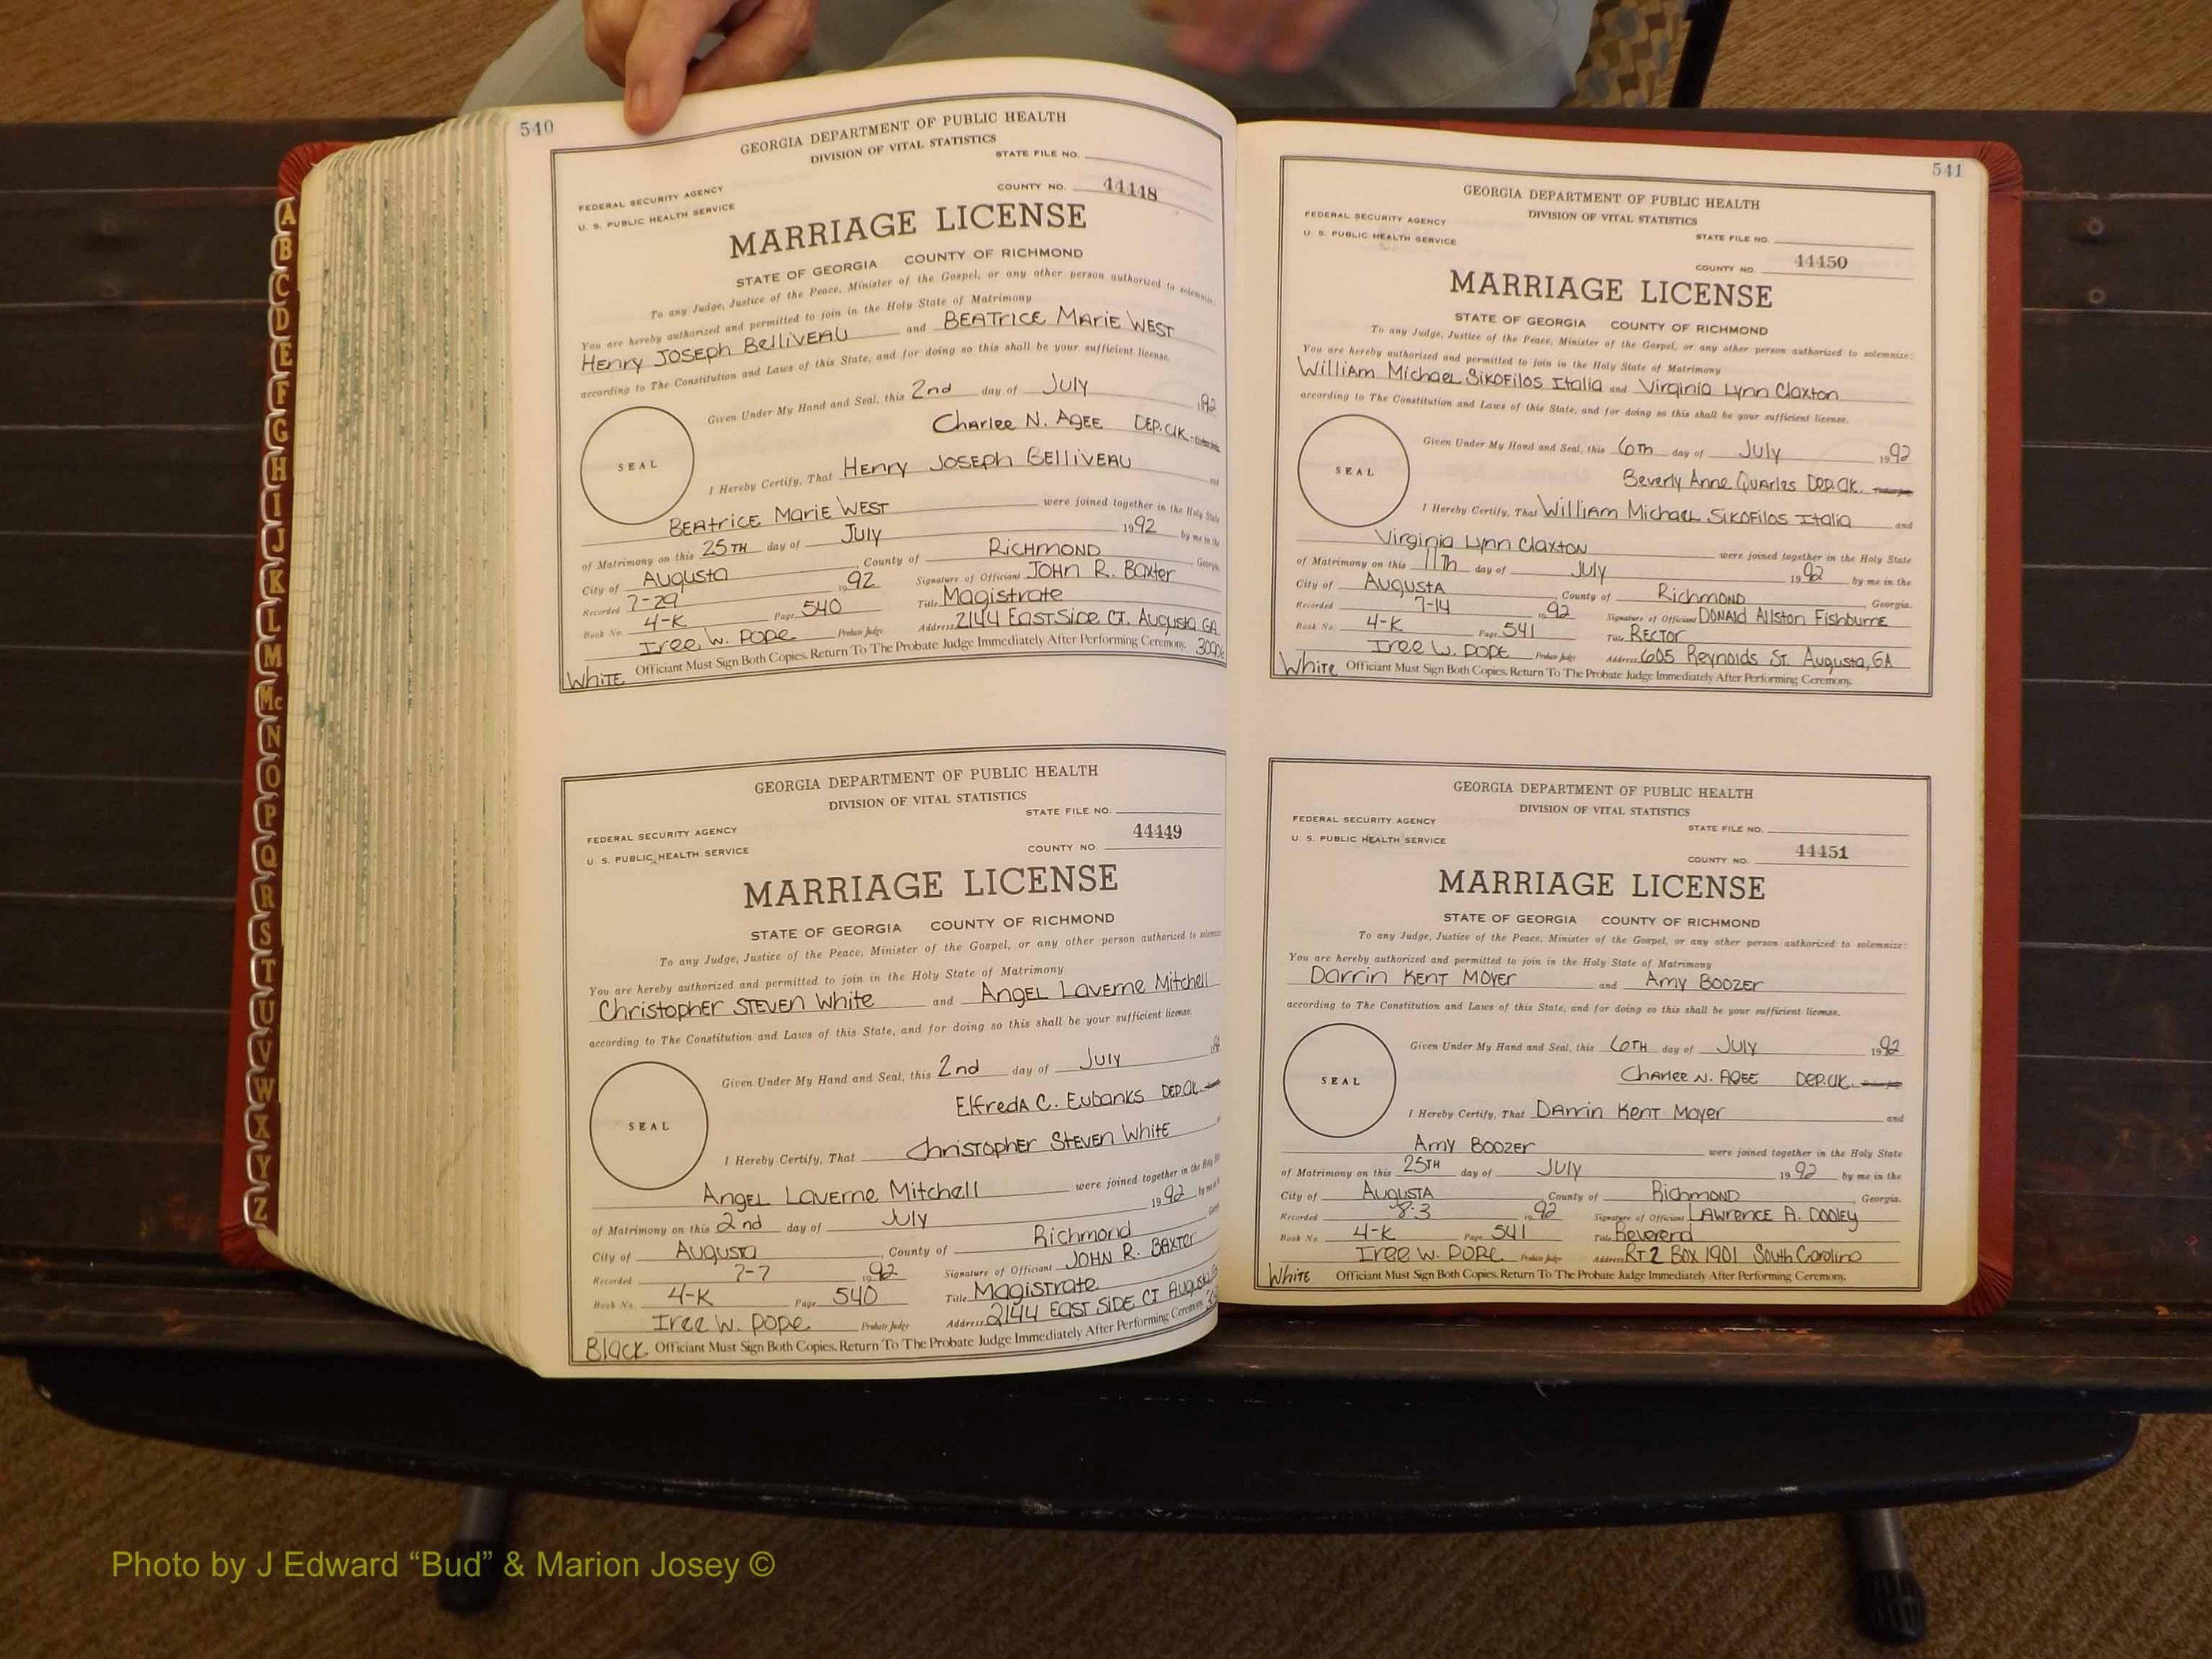 540
GEORGIA DEPARTMENT OF PUBLIC HEALTH
DIVISION OF VITAL STATISTICS
STATE FILE NO.
FEDERAL SECURITY AGENCY
U. S. PUBLIC HEALTH SERVICE
COUNTY NO. 44448
MARRIAGE LICENSE
STATE OF GEORGIA COUNTY OF RICHMOND
To any Judge, Justice of the Peace, Minister of the Gospel, or any other person authorized to solemnize:
You are hereby authorized and permitted to join in the Holy State of Matrimony
Henry Joseph Belliveau and Beatrice Marie West
according to The Constitution and Laws of this State, and for doing so this shall be your sufficient license.
Given Under My Hand and Seal, this 2nd day of July 1992
Charlee N. Agee Dep. Clk.
SEAL
I Hereby Certify, That Henry Joseph Belliveau and
Beatrice Marie West were joined together in the Holy State
of Matrimony on this 25TH day of July 1992 by me in the
City of Augusta, County of Richmond Georgia
Recorded 7-29 1992 Signature of Officiant John R. Baxter
Book No. 4-K Page 540 Title Magistrate
Iree W. Pope Probate Judge Address 2144 East Side Ct. Augusta GA
White Officiant Must Sign Both Copies. Return To The Probate Judge Immediately After Performing Ceremony.
GEORGIA DEPARTMENT OF PUBLIC HEALTH
DIVISION OF VITAL STATISTICS
STATE FILE NO.
FEDERAL SECURITY AGENCY
U. S. PUBLIC HEALTH SERVICE
COUNTY NO. 44449
MARRIAGE LICENSE
STATE OF GEORGIA COUNTY OF RICHMOND
To any Judge, Justice of the Peace, Minister of the Gospel, or any other person authorized to solemnize
You are hereby authorized and permitted to join in the Holy State of Matrimony
Christopher Steven White and Angel Laverne Mitchell
according to The Constitution and Laws of this State, and for doing so this shall be your sufficient license.
Given Under My Hand and Seal, this 2nd day of July
Elfreda C. Eubanks Dep. Clk.
SEAL
I Hereby Certify, That Christopher Steven White
Angel Laverne Mitchell were joined together in the Holy
of Matrimony on this 2nd day of July 1992 by me
City of Augusta, County of Richmond
Recorded 7-7 1992 Signature of Officiant John R. Baxter
Book No. 4-K Page 540 Title Magistrate
Iree W. Pope Probate Judge Address 2144 East Side Ct Augusta
Black Officiant Must Sign Both Copies. Return To The Probate Judge Immediately After Performing Ceremony.
541
GEORGIA DEPARTMENT OF PUBLIC HEALTH
DIVISION OF VITAL STATISTICS
FEDERAL SECURITY AGENCY
U. S. PUBLIC HEALTH SERVICE
STATE FILE NO.
COUNTY NO. 44450
MARRIAGE LICENSE
STATE OF GEORGIA COUNTY OF RICHMOND
To any Judge, Justice of the Peace, Minister of the Gospel, or any other person authorized to solemnize:
You are hereby authorized and permitted to join in the Holy State of Matrimony
William Michael Sikofilos Italia and Virginia Lynn Claxton
according to The Constitution and Laws of this State, and for doing so this shall be your sufficient license.
Given Under My Hand and Seal, this 6th day of July 1992
Beverly Anne Quarles Dep. Clk.
SEAL
I Hereby Certify, That William Michael Sikofilos Italia and
Virginia Lynn Claxton were joined together in the Holy State
of Matrimony on this 11th day of July 1992 by me in the
City of Augusta, County of Richmond, Georgia.
Recorded 7-14 1992 Signature of Officiant Donald Allston Fishburne
Book No. 4-K Page 541 Title Rector
Iree W. Pope Probate Judge Address 605 Reynolds St. Augusta, GA
White Officiant Must Sign Both Copies. Return To The Probate Judge Immediately After Performing Ceremony.
GEORGIA DEPARTMENT OF PUBLIC HEALTH
DIVISION OF VITAL STATISTICS
FEDERAL SECURITY AGENCY
U. S. PUBLIC HEALTH SERVICE
STATE FILE NO.
COUNTY NO. 44451
MARRIAGE LICENSE
STATE OF GEORGIA COUNTY OF RICHMOND
To any Judge, Justice of the Peace, Minister of the Gospel, or any other person authorized to solemnize:
You are hereby authorized and permitted to join in the Holy State of Matrimony
Darrin Kent Moyer and Amy Boozer
according to The Constitution and Laws of this State, and for doing so this shall be your sufficient license.
Given Under My Hand and Seal, this 6TH day of July 1992
Charlee N. Agee Dep. Clk.
SEAL
I Hereby Certify, That Darrin Kent Moyer and
Amy Boozer were joined together in the Holy State
of Matrimony on this 25TH day of July 1992 by me in the
City of Augusta, County of Richmond, Georgia.
Recorded 8-3 1992 Signature of Officiant Lawrence A. Dooley
Book No. 4-K Page 541 Title Reverend
Iree W. Pope Probate Judge Address Rt 2 Box 1901 South Carolina
White Officiant Must Sign Both Copies. Return To The Probate Judge Immediately After Performing Ceremony.
A
B
C
D
E
F
G
H
I
J
K
L
M
Mc
N
O
P
Q
R
S
T
U
V
W
X
Y
Z
Photo by J Edward “Bud” & Marion Josey ©